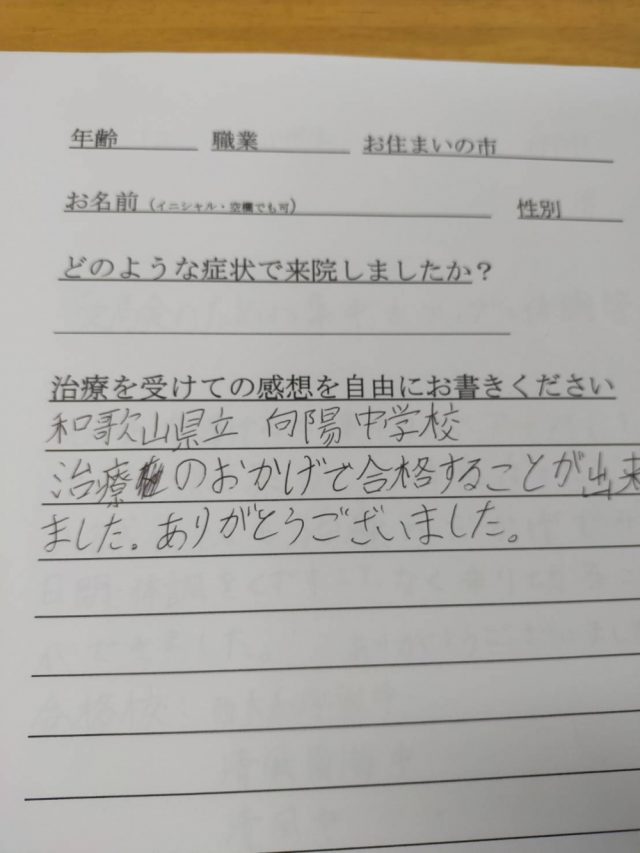 年齢 職業 お住まいの市
お名前（イニシャル・空欄でも可） 性別
どのような症状で来院しましたか？
治療を受けての感想を自由にお書きください
和歌山県立 向陽中学校
治療のおかげで合格することが出来
ました。ありがとうございました。